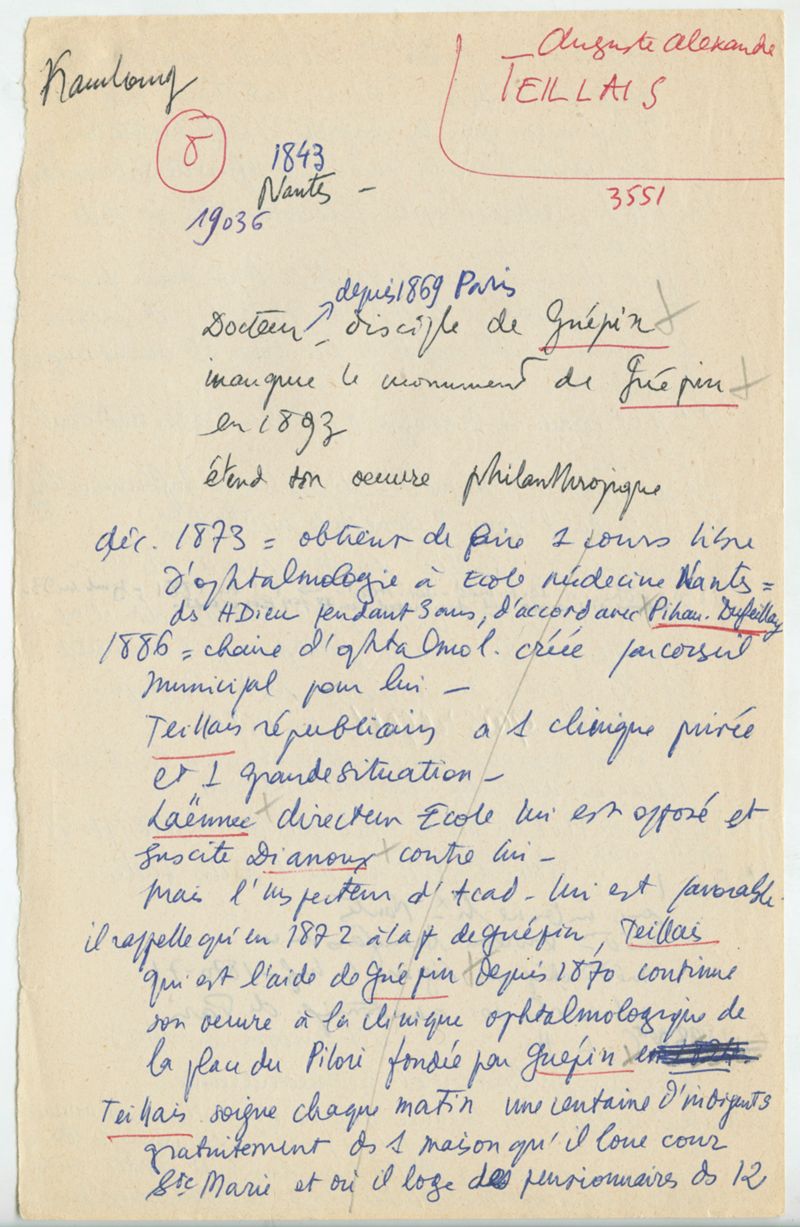 Auguste Alexandre
TEILLAIS
3551
1843
Nantes -
19036
depuis 1869 Paris
Docteur - disciple de Guépin
inaugure le monument de Guépin
en 1893
étend son oeuvre philanthropique
déc. 1873 = obtient de faire 1 cours libre
d'ophtalmologie à Ecole médecine Nantes =
ds HDieu pendant 3 ans, d'accord avec Pihan-Dufeillay
1886 = chaire d'ophtalmol. créée par conseil
municipal pour lui -
Teillais républicain a 1 clinique privée
et 1 grande situation -
Laënnec directeur Ecole lui est opposé et
suscite Dianoux contre lui -
mais l'inspecteur d'Acad. lui est favorable.
il rappelle qu'en 1872 à la † de Guépin, Teillais
qui est l'aide de Guépin depuis 1870 continue
son oeuvre à la clinique ophtalmologique de
la place du Pilori fondée par Guépin
Teillais soigne chaque matin une centaine d'indigents
gratuitement ds 1 maison qu'il loue cour
Ste Marie et où il loge des pensionnaires ds 12